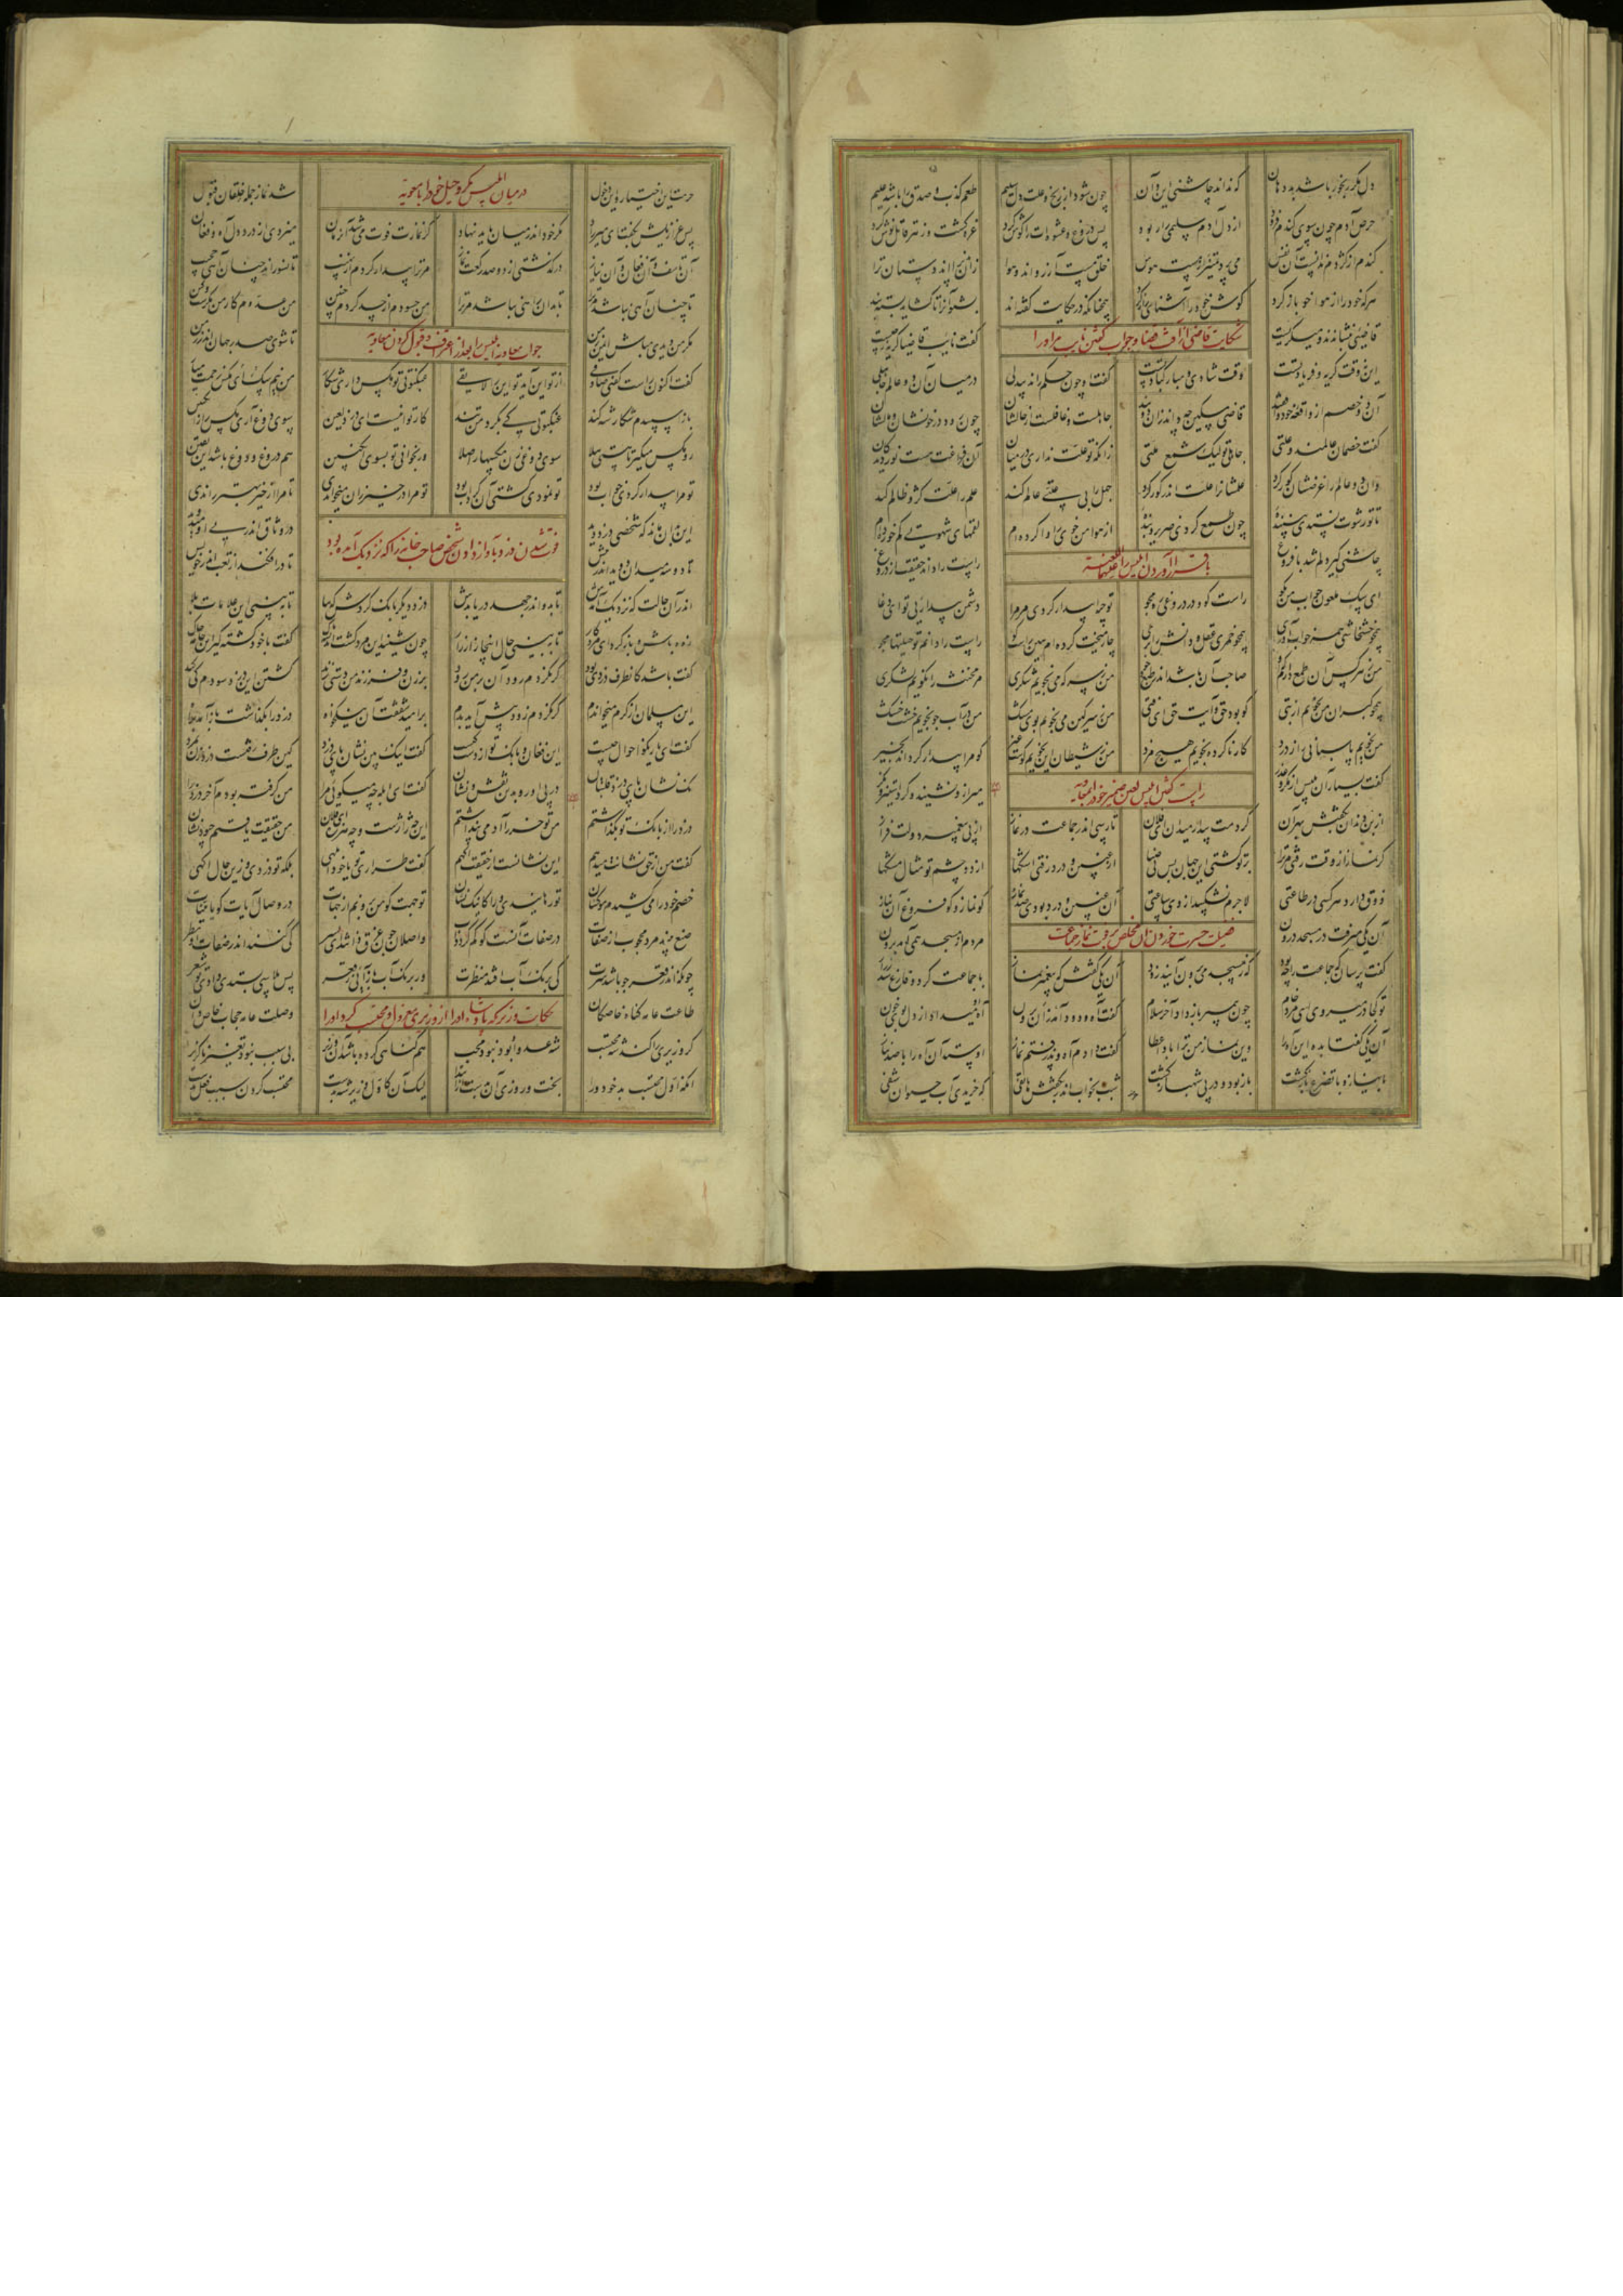 دل مگر رنجور باشد بد دهان که نداند چاشنی این و آن چون شود از رنج و علت دل سلیم طعم کذب و صدق را باشد علیم
حرص آدم چون سوی گندم فزود از دل آدم سلیمی را ربود پس دروغ و عشوه‌ات را گوش کرد غره گشت و زهر قاتل نوش کرد
گندم از کژدم ندانست آن نفس می پرد تمییز از مست هوس خلق مست آرزواند و هوا زان پذیرااند دستان ترا
هر که خود را از هوا خو باز کرد گوش خود را آشنای راز کرد همچنانکه در حکایت گفته‌اند بشنو آنرا تا گشاید بسته بند
شکایت قاضی از آفت قضا و جواب گفتن نایب مر او را
قاضیی بنشاندند و میگریست گفت نایب قاضیا گریه ز چیست
این نه وقت گریه و فریاد تست وقت شادی و مبارکباد تست گفت اه چون حکم راند بی دلی در میان آن دو عالم جاهلی
آن دو خصم از واقعه خود واقفند قاضی مسکین چه داند زان دو بند جاهلست و غافلست از حالشان چون رود در خونشان و مالشان
گفت خصمان عالمند و علتی جاهلی تو لیک شمع ملتی زانکه تو علت نداری در میان آن فراغت هست نور دیدگان
وان دو عالم را غرضشان کور کرد علمشانرا علت اندر گور کرد جهل را بی علتی عالم کند علم را علت کژ و ظالم کند
تا تو رشوت نستدی بینندۀ چون طمع کردی ضریر و بندۀ از هوا من خوی را وا کرده‌ام لقمهای شهوتی کم خورده‌ام
باقرار آوردن ابلیس را
چاشنی گیر دلم شد با فروغ راست را داند حقیقت از دروغ
ای سگ ملعون جواب من بگو راست گو و در دروغی ره مجو تو چرا بیدار کردی مر مرا دشمن بیداریی تو ای دغا
همچو خشخاشی همه خواب آوری همچو خمری عقل و دانش را بری چار میخت کرده‌ام هین راست گو راست را دانم تو حیلتها مجو
من ز هر کس آن طمع دارم که او صاحب آن باشد اندر طبع و خو من ز سرکه می نجویم شکری مر مخنث را نگویم لشکری
همچو گبران من نجویم از بتی کو بود حق یا من ز سرگین می نجویم بوی مشک من در آب جو نجویم خشت خشک
من نجویم پاسبانی را ز دزد کار ناکرده نجویم هیچ مزد من ز شیطان این نجویم کوست غیر کو مرا بیدار گرداند بخیر
راست گفتن ابلیس ضمیر خود را بمعاویه
گفت بسیار آن بلیس از مکر و غدر میر ازو نشنید و کرد استیز و
از بن دندان بگفتش بهر آن کردمت بیدار میدان ای فلان تا رسی اندر جماعت در نماز از پی پیغمبر دولت فراز
گر نماز از وقت رفتی مر ترا بر تو گشتی این جهان پس بی ضیا از غبین و درد رفتی اشکها از دو چشم تو مثال مشکها
ذوق دارد هر کسی در طاعتی لاجرم نشکیبد از وی ساعتی آن غبین و درد بودی صد نماز کو نماز و کو فروغ آن نیاز
فضیلت حسرت خوردن آن مخلص بر فوت نماز جماعت
آن یکی میرفت در مسجد درون مردم از مسجد همی آمد برون
گفت پرسان که جماعت را چه بود که ز مسجد می برون آیند زود آن یکی گفتش که پیغمبر نماز با جماعت کرد و فارغ شد ز راز
تو کجا در میروی ای مرد خام چون پیمبر باز داد آخر سلام گفت آه و دود آمد زان برون آه او میداد از دل بوی خون
آن یکی گفتا بده این آه را وین نماز من ترا بادا عطا گفت دادم آه و پذرفتم نماز او ستد آن آه را با صد نیاز
با نیاز و با تضرع بازگشت باز بود و در پی شهباز گشت شب بخواب اندر بگفتش هاتفی که خریدی آب حیوان شفی
در میان ابلیس مکر و حیل خود را با معویه
حرمت این اختیار و این دخول شد نماز جمله خلقان قبول
پس عزازیلش بگفت ای میر راد مکر خود اندر میان باید نهاد گر نمازت فوت میشد آن زمان میزدی از درد دل آه و فغان
آن تاسف و آن فغان و آن نیاز درگذشتی از دو صد رکعت نماز مر ترا بیدار کردم از نهیب تا نسوزاند چنان آهی حجیب
تا چنان آهی نباشد مر ترا تا بدان راهی نباشد مر ترا من حسودم از حسد کردم چنین من عدوم کار من مکرست و کین
جواب معاویه ابلیس را بعد از اعتراف و قبول کردن معاویه
مکر من دیدی مباش ایمن تا شوی صدر جهان اندر
گفت اکنون راست گفتی صادقی از تو این آید تو این را لایقی عنکبوتی تو مگس داری شکار من نیم ای سگ مگس زحمت میار
باز اسپیدم شکارم شه کند عنکبوتی کی بگرد من تند کار تو اینست ای دزد لعین سوی دوغ آری مگس را ز انگبین
رو مگس میگیر تا تانی هلا سوی دوغی زن مگسها را صلا ور بخوانی تو بسوی انگبین هم دروغ و دوغ باشد این یقین
تو مرا بیدار کردی خواب بود تو نمودی کشتی آن گرداب بود تو مرا در خیر زان میخواندی تا مرا از خیر بهتر راندی
فوت شدن دزد بآواز دادن شخص صاحب خانه را که نزدیک آمده بود
این بدان ماند که شخصی دزد دید در وثاق اندر پی او میدوید
تا دو سه میدان دوید اندر پیش تا در افکند از تعب اندر خویش
اندر آن حالت که نزدیک آمدش تا بدو اندر جهد دریابدش دزد دیگر بانگ کردش که بیا تا ببینی این علامات بلا
زود باش و باز گرد ای مرد کار تا ببینی حال اینجا زار زار چون شنید این مرد گشت گفت با خود
گفت باشد کانطرف دزدی بود گر نگردم زود آن بر من رود بر زن و فرزند من دستی زند کشتن این دزد سودم کی کند
این مسلمان از کرم میخواندم گر نگردم زود پیش آید ندم بر امید شفقت آن نیکخواه دزد را بگذاشت باز آمد براه
گفت ای یار نکو احوال چیست این فغان و بانگ تو از دست کیست گفت اینک بین نشان پای دزد کین طرف رفتست دزد زن بمزد
نک نشان پای دزد قلتبان در پی او رو بدین نقش و نشان گفت ای ابله چه میگوئی مرا من گرفته بودم آخر دزد را
دزد را از بانگ تو بگذاشتم من تو خر را آدمی پنداشتم این چه ژاژست و چه هرزه ای فلان من حقیقت یافتم چبود نشان
گفت من از حق نشانت میدهم این نشانست از حقیقت آگهم گفت طراری تو یا خود ابلهی بلکه تو دزدی و زین حال آگهی
خصم خود را میکشیدم موکشان تو رهانیدی ورا کاینک نشان تو جهت گو من برونم از جهات در وصال آیات کو یا بینات
صنع بیند مرد محجوب از صفات در صفات آنست کو گم کرد ذات واصلان چون غرق ذاتند ای پسر کی کنند اندر صفات او نظر
چونکه اندر قعر جو باشد سرت کی برنگ آب افتد منظرت ور برنگ آب باز آیی ز قعر پس پلاسی بستدی دادی تو شعر
حکایت وزیر که پادشاه او را از وزیری معزول و محتسب کرد او را
طاعت عامه گناه خاصگان وصلت عامه حجاب خاص دان
گر وزیری را کند شه محتسب شه عدو او بود نبود محب هم گناهی کرده باشد آن وزیر بی سبب نبود تغیر ناگزیر
آنکه ز اول محتسب بد خود ورا بخت و روزی آن بدست ز ابتدا لیک آن کاول وزیر شه بدست محتسب کردن سبب فعل بدست